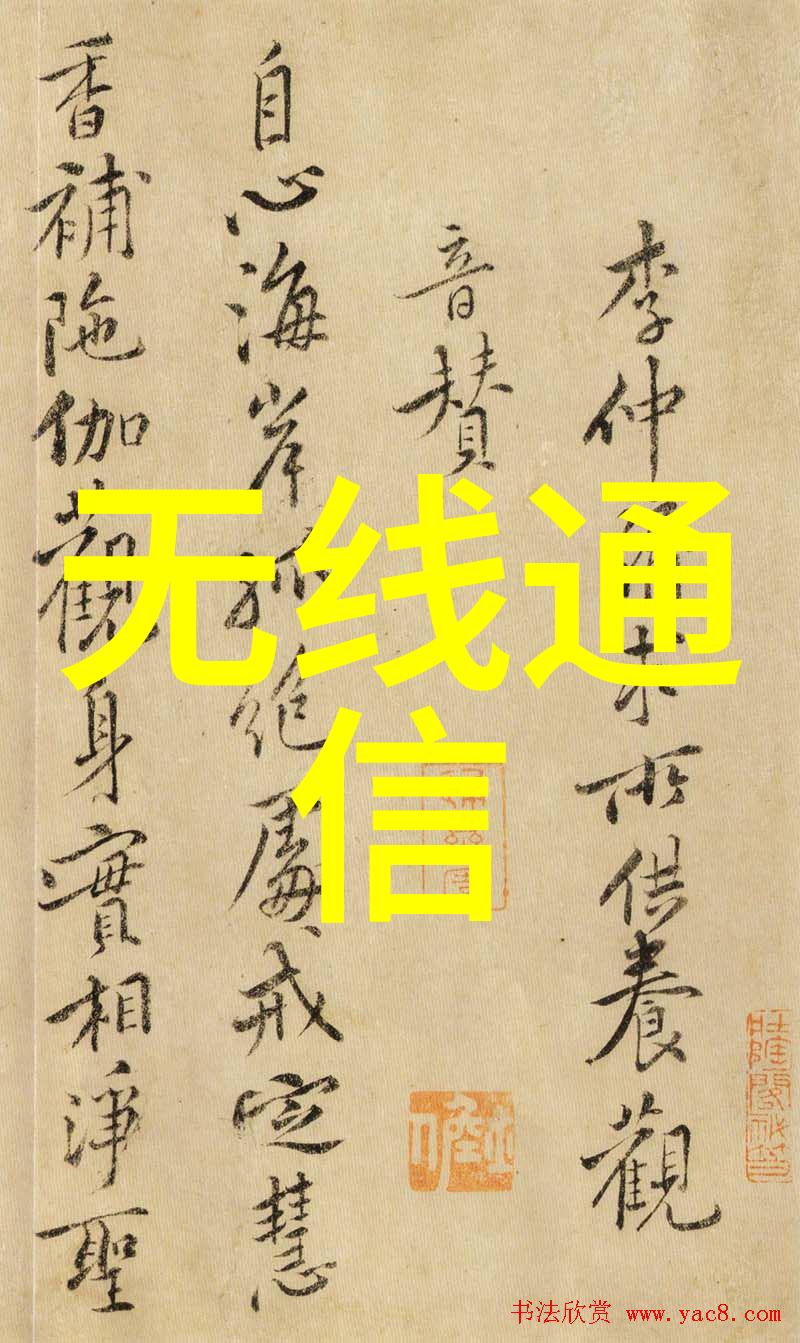 无线通
信
李仲求所供養觀
音贊
自心海岸孤絶處戒定慧
香補陁伽觀身實相淨聖
书法欣赏 www.yac8.com